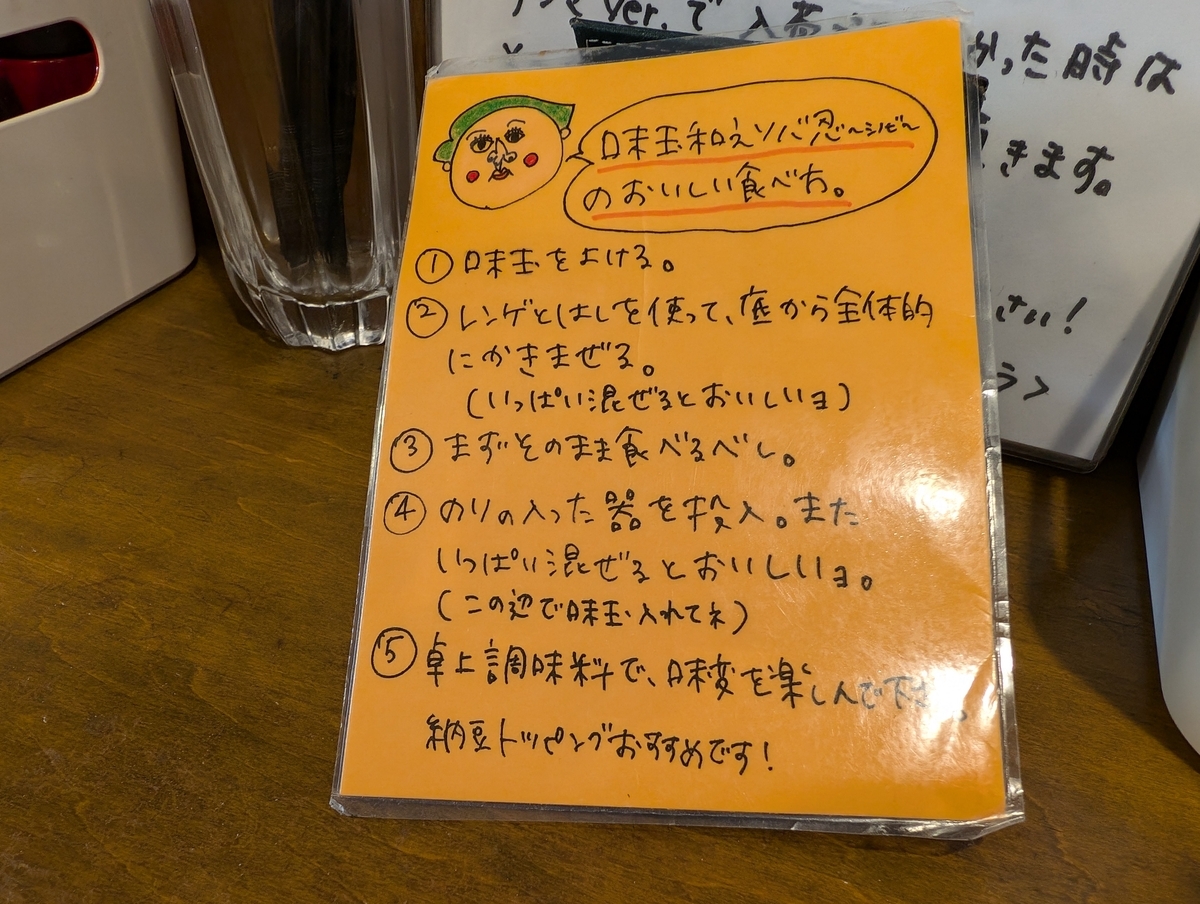 Ver.で入荷
かった時は
きます。
さい!
味玉和えソバ忍〜シノビ〜
のおいしい食べ方。
① 味玉をよける。
② レンゲとはしを使って、底から全体的
にかきまぜる。
(いっぱい混ぜるとおいしいヨ)
③ まずそのまま食べるべし。
④ のりの入った器を投入。また
いっぱい混ぜるとおいしいョ。
(この辺で味玉入れてネ)
⑤ 卓上調味料で、味変を楽しんで下
納豆トッピングおすすめです!